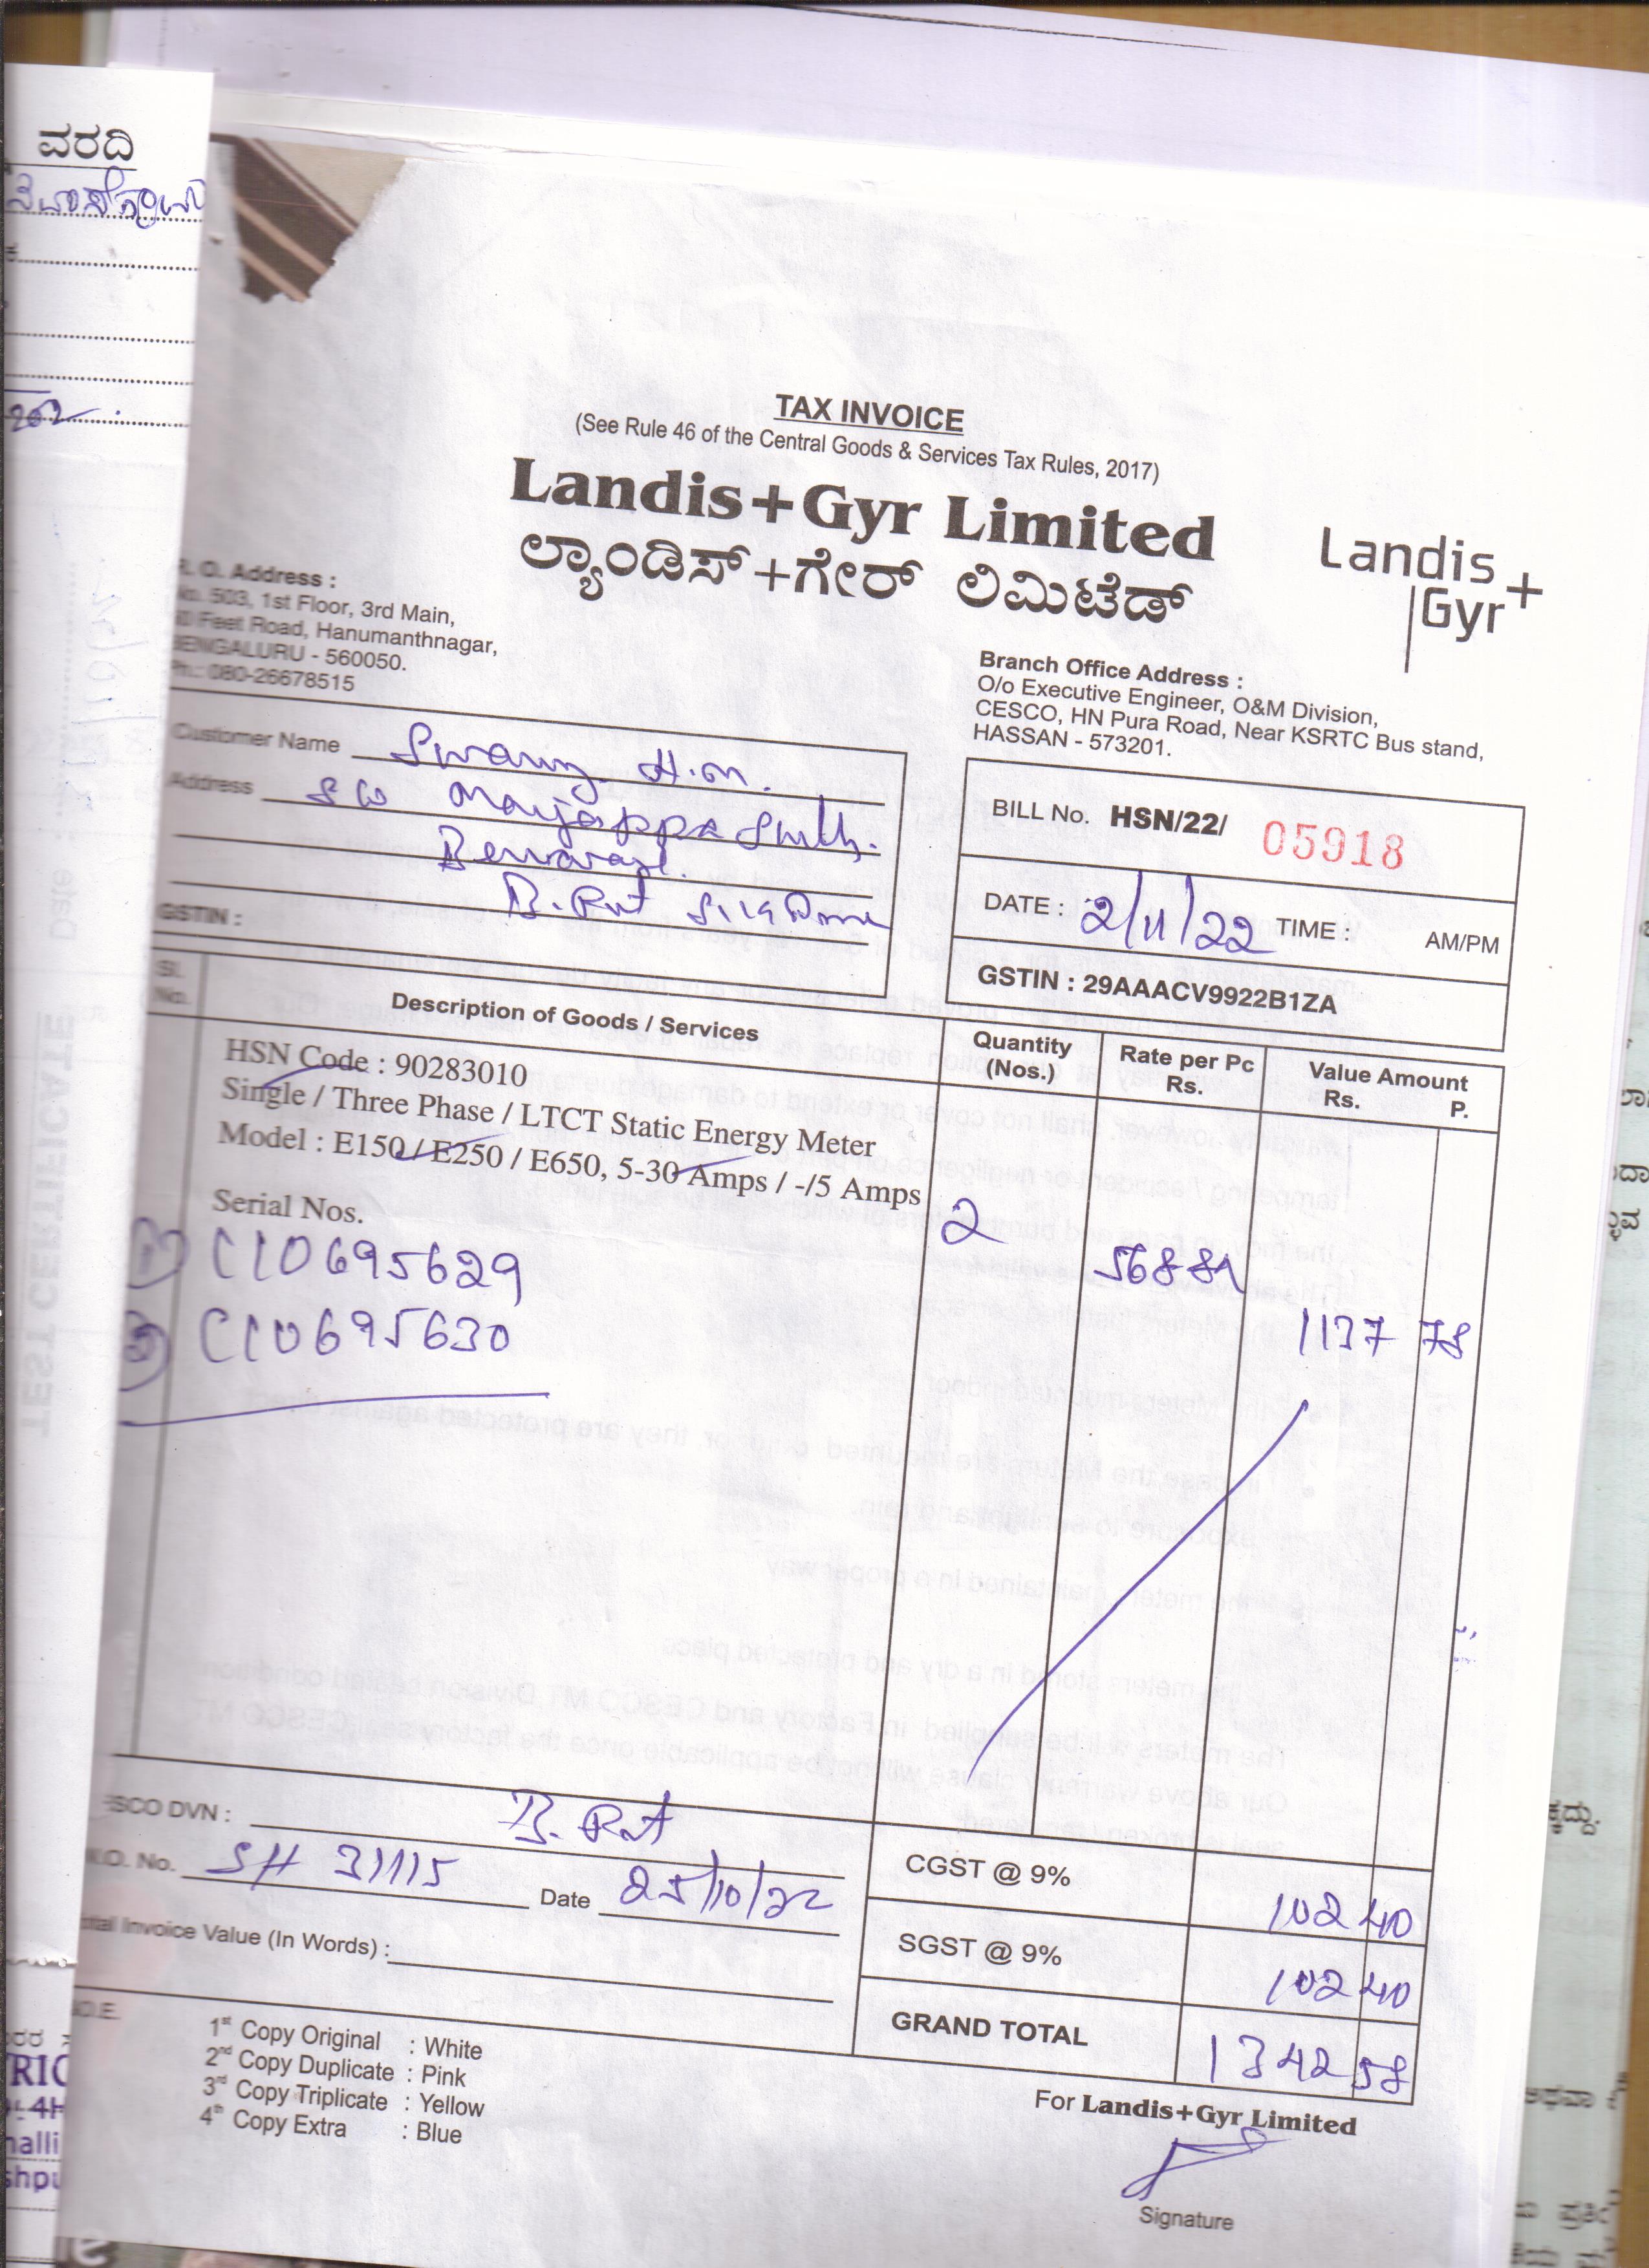 ವರದಿ
TAX INVOICE
(See Rule 46 of the Central Goods & Services Tax Rules, 2017)
Landis+Gyr Limited
ಲ್ಯಾಂಡಿಸ್+ಗೇರ್ ಲಿಮಿಟೆಡ್
Landis+
Gyr
R. O. Address :
No. 503, 1st Floor, 3rd Main,
Feet Road, Hanumanthnagar,
BENGALURU - 560050.
Ph.: 080-26678515
Branch Office Address :
O/o Executive Engineer, O&M Division,
CESCO, HN Pura Road, Near KSRTC Bus stand,
HASSAN - 573201.
Customer Name Swamy. H.M.
Address
B. Rut
GSTIN :
BILL No. HSN/22/ 05918
DATE : 2/11/22 TIME : AM/PM
GSTIN : 29AAACV9922B1ZA
Sl. No. Description of Goods / Services Quantity (Nos.) Rate per Pc Rs. Value Amount Rs. P.
HSN Code : 90283010
Single / Three Phase / LTCT Static Energy Meter
Model : E150 / E250 / E650, 5-30 Amps / -/5 Amps
Serial Nos. 2
1) C10695629 568 89
2) C10695630 1137 78
DVN : B. Rut
No. SH 31115 Date 25/10/22
Total Invoice Value (In Words) :
CGST @ 9% 102 40
SGST @ 9% 102 40
GRAND TOTAL 1342 58
1st Copy Original : White
2nd Copy Duplicate : Pink
3rd Copy Triplicate : Yellow
4th Copy Extra : Blue
For Landis+Gyr Limited
Signature
TEST CERTIFICATE
Date :